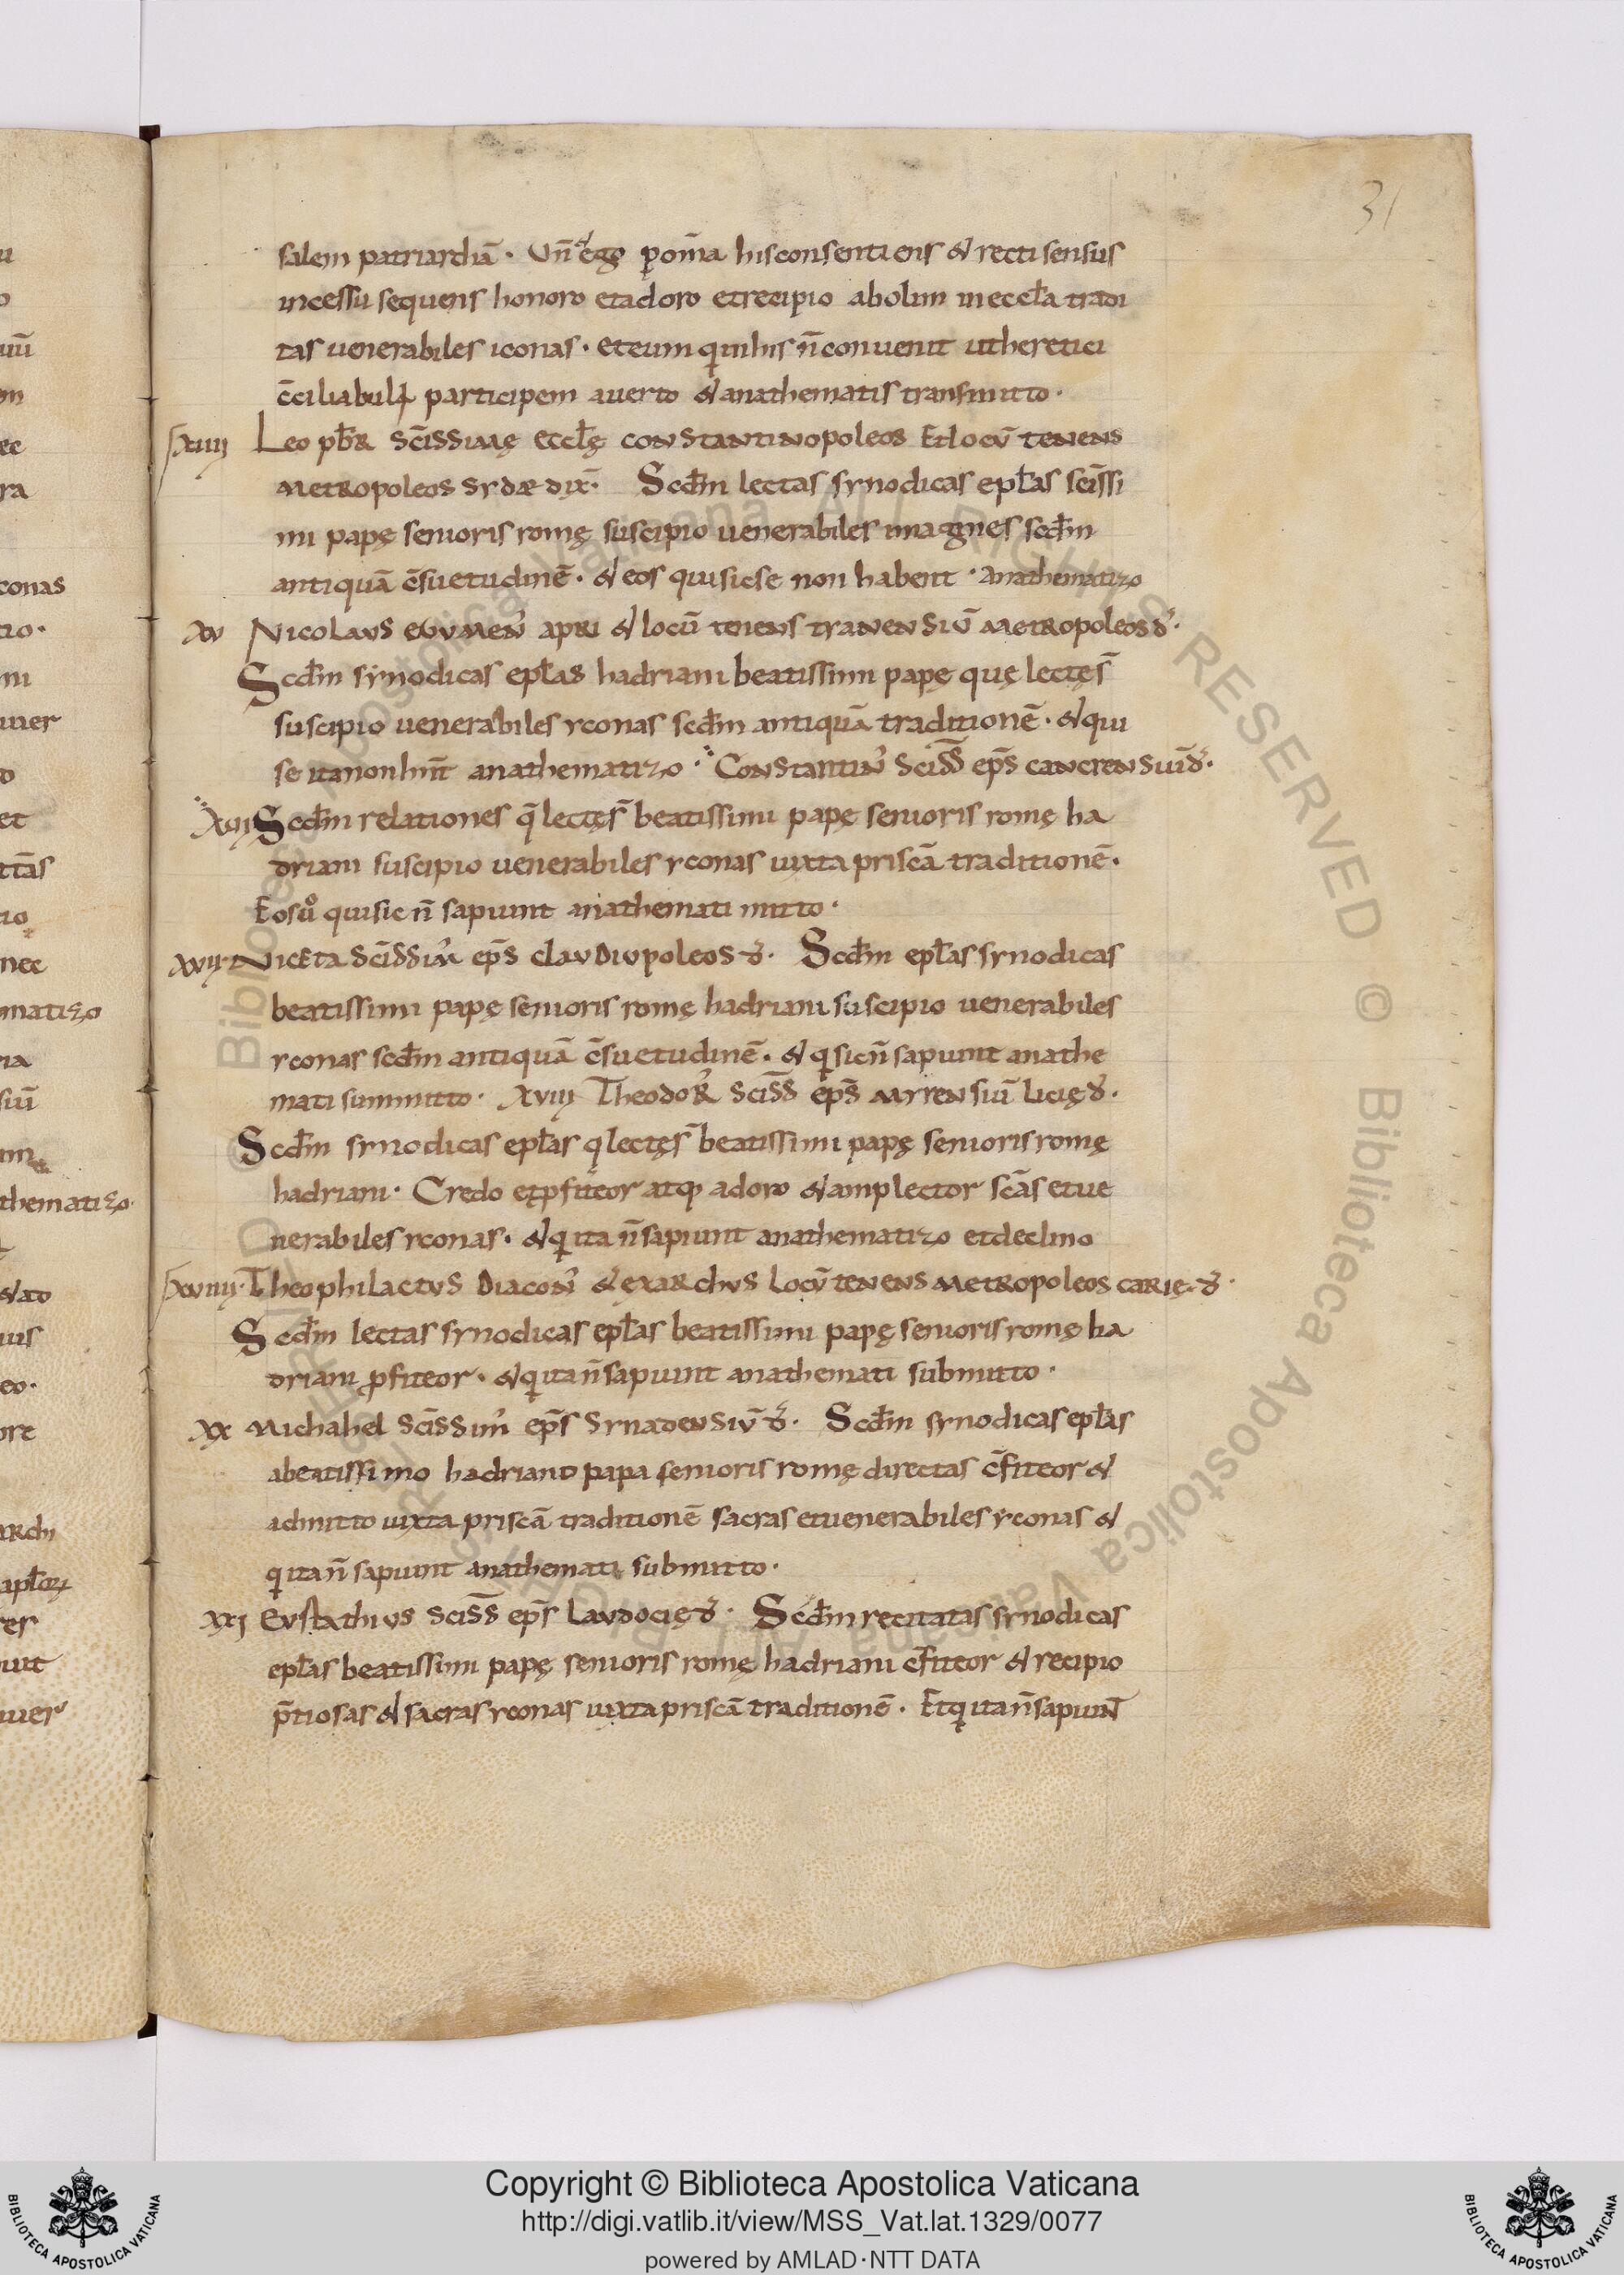 31
salem patriarchā. Un̄ &ego p om̄a his consentiens & recti sensus
incessu sequens honoro et adoro et recipio ab olim in eccła tradi
tas uenerabiles iconas. et eum qui in his n̄ conuenit ut heretici
c̄ciliabuli participem auerto & anathematis transmitto.
xiiii Leo pb̄r sc̄issimę ecclę constantinopoleos Et locū tenens
metropoleos sydæ dix̄. Scd̄m lectas synodicas epłas sc̄issi
mi papę senioris romę suscipio uenerabiles imagines scd̄m
antiquā c̄suetudinē. & eos qui sic se non habent. anathematizo
xv Nicolaus egumen' apri & locū tenens tranensiū metropoleos d'.
Scd̄m synodicas epłas hadriani beatissimi papę quę lectę s̄
suscipio uenerabiles yconas scd̄m antiquā traditionē. & qui
se ita non hn̄t anathematizo. Constantin' sciss̄ ep̄s cancrensiū d'.
xvi Scd̄m relationes q̄ lectę s̄ beatissimi papę senioris romę ha
driani suscipio uenerabiles yconas iuxta priscā traditionē.
Eos uº qui sic n̄ sapiunt anathemati mitto.
xvii Niceta sc̄issim' ep̄s claudiupoleos d'. Scd̄m epłas synodicas
beatissimi papę senioris romę hadriani suscipio uenerabiles
yconas scd̄m antiquā c̄suetudinē. & q sic n̄ sapiunt anathe
mati summitto. xviii Theodor' sciss̄ ep̄s myrensiū licię d'.
Scd̄m synodicas epłas q lectę s̄ beatissimi papę senioris romę
hadriani. Credo et pfiteor atq; adoro & amplector sc̄as et ue
nerabiles yconas. & q ita n̄ sapiunt anathematizo et declino
xviiii. Theophilactus diacon' & exarchus locū tenens metropoleos carię. d'.
Scd̄m lectas synodicas epłas beatissimi papę senioris romę ha
driani pfiteor. & q ita n̄ sapiunt anathemati submitto.
xx Michahel sc̄issim' ep̄s synadensiū d'. Scd̄m synodicas epłas
a beatissimo hadriano papa senioris romę directas c̄fiteor &
admitto iuxta priscā traditionē sacras et uenerabiles yconas &
q ita n̄ sapiunt anathemati submitto.
xxi Eustathius sciss̄ ep̄s laudocię d'. Scd̄m recitatas synodicas
epłas beatissimi papę senioris romę hadriani c̄fiteor & recipio
p̄tiosas & sacras yconas iuxta priscā traditionē. Et q ita n̄ sapiunt
Copyright © Biblioteca Apostolica Vaticana
http://digi.vatlib.it/view/MSS_Vat.lat.1329/0077
powered by AMLAD·NTT DATA